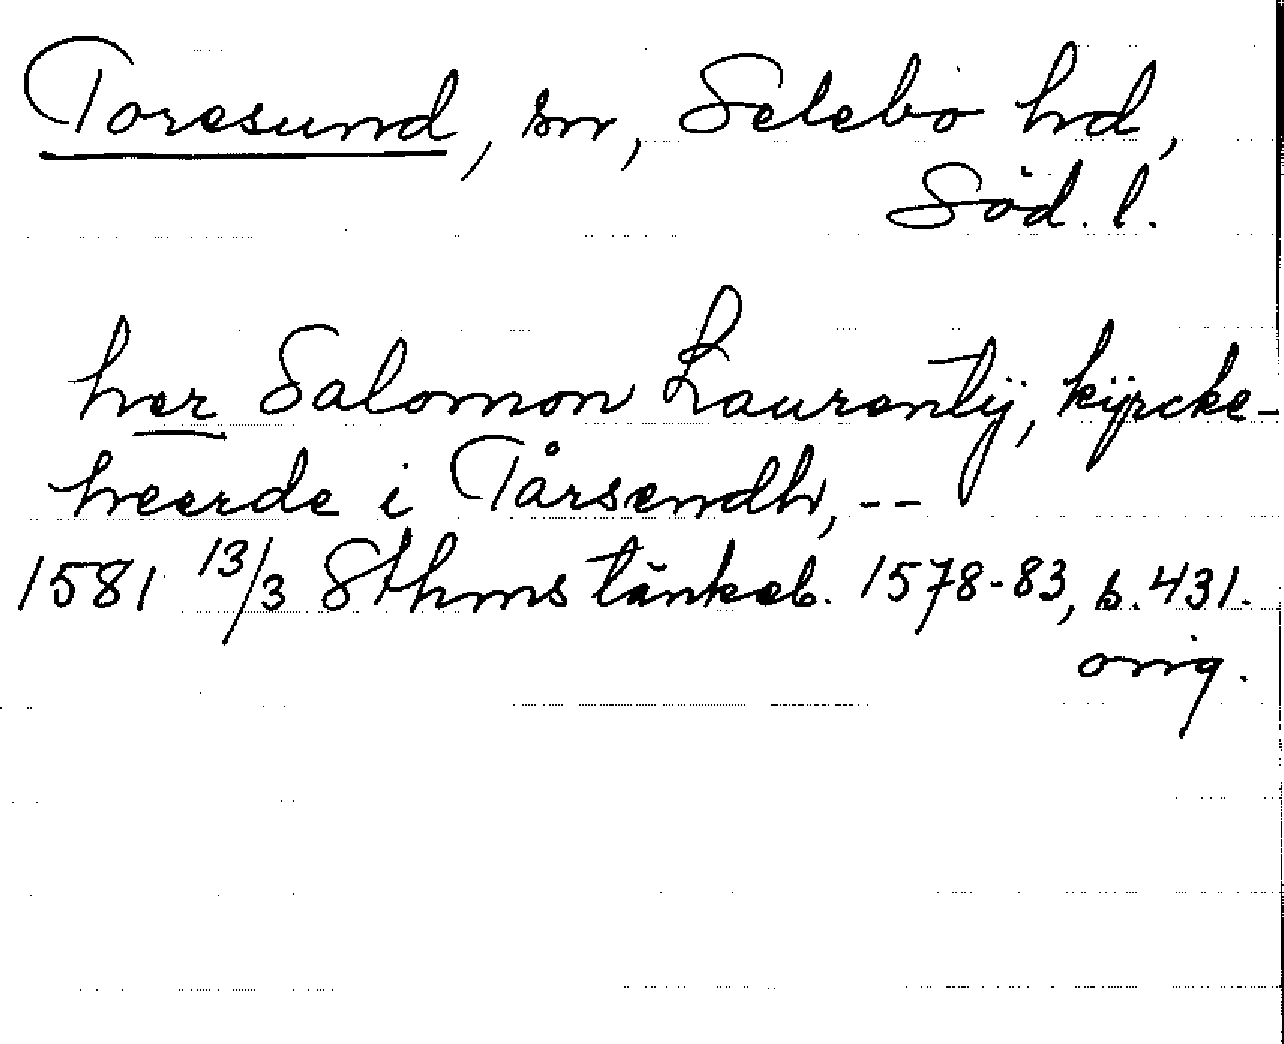 Toresund, sn, Selebo hd,
Söd. l.
her Salomon Laurentÿ, kÿrcke-
heerde i Tårsendh, --
1581 13/3 Sthms tänkeb. 1578-83, s. 431.
orig.